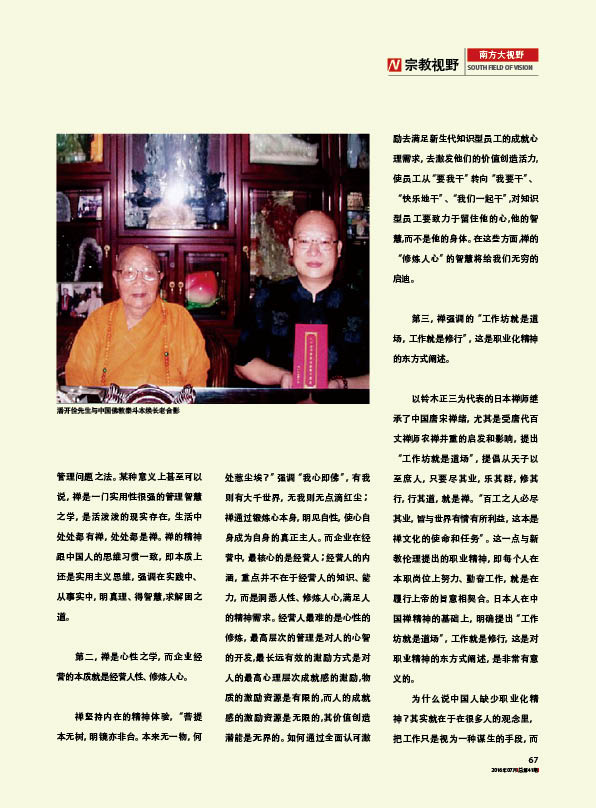 宗教视野
南方大视野
SOUTH FIELD OF VISION
潘开俭先生与中国佛教泰斗本焕长老合影
管理问题之法。某种意义上甚至可以
说，禅是一门实用性很强的管理智慧
之学，是活泼泼的现实存在，生活中
处处都有禅，处处都是禅。禅的精神
跟中国人的思维习惯一致，即本质上
还是实用主义思维，强调在实践中、
从事实中，明真理、得智慧,求解困之
道。
第二，禅是心性之学，而企业经
营的本质就是经营人性、修炼人心。
禅坚持内在的精神体验，“菩提
本无树，明镜亦非台。本来无一物，何
处惹尘埃？”强调“我心即佛”，有我
则有大千世界，无我则无点滴红尘；
禅通过锻炼心本身，明见自性，使心自
身成为自身的真正主人。而企业在经
营中，最核心的是经营人；经营人的内
涵，重点并不在于经营人的知识、能
力，而是洞悉人性、修炼人心,满足人
的精神需求。经营人最难的是心性的
修炼，最高层次的管理是对人的心智
的开发,最长远有效的激励方式是对
人的最高心理层次成就感的激励,物
质的激励资源是有限的,而人的成就
感的激励资源是无限的,其价值创造
潜能是无界的。如何通过全面认可激
励去满足新生代知识型员工的成就心
理需求，去激发他们的价值创造活力,
使员工从“要我干”转向“我要干”、
“快乐地干”、“我们一起干”,对知识
型员工要致力于留住他的心,他的智
慧,而不是他的身体。在这些方面,禅的
“修炼人心”的智慧将给我们无穷的
启迪。
第三，禅强调的“工作坊就是道
场，工作就是修行”，这是职业化精神
的东方式阐述。
以铃木正三为代表的日本禅师继
承了中国唐宋禅绪，尤其是受唐代百
丈禅师农禅并重的启发和影响，提出
“工作坊就是道场”，提倡从天子以
至庶人，只要尽其业，乐其群，修其
行，行其道，就是禅。“百工之人必尽
其业，皆与世界有情有所利益，这本是
禅文化的使命和任务”。这一点与新
教伦理提出的职业精神，即每个人在
本职岗位上努力、勤奋工作，就是在
履行上帝的旨意相契合。日本人在中
国禅精神的基础上，明确提出“工作
坊就是道场”，工作就是修行，这是对
职业精神的东方式阐述，是非常有意
义的。
为什么说中国人缺少职业化精
神？其实就在于在很多人的观念里，
把工作只是视为一种谋生的手段，而
67
2016年07月总第41期